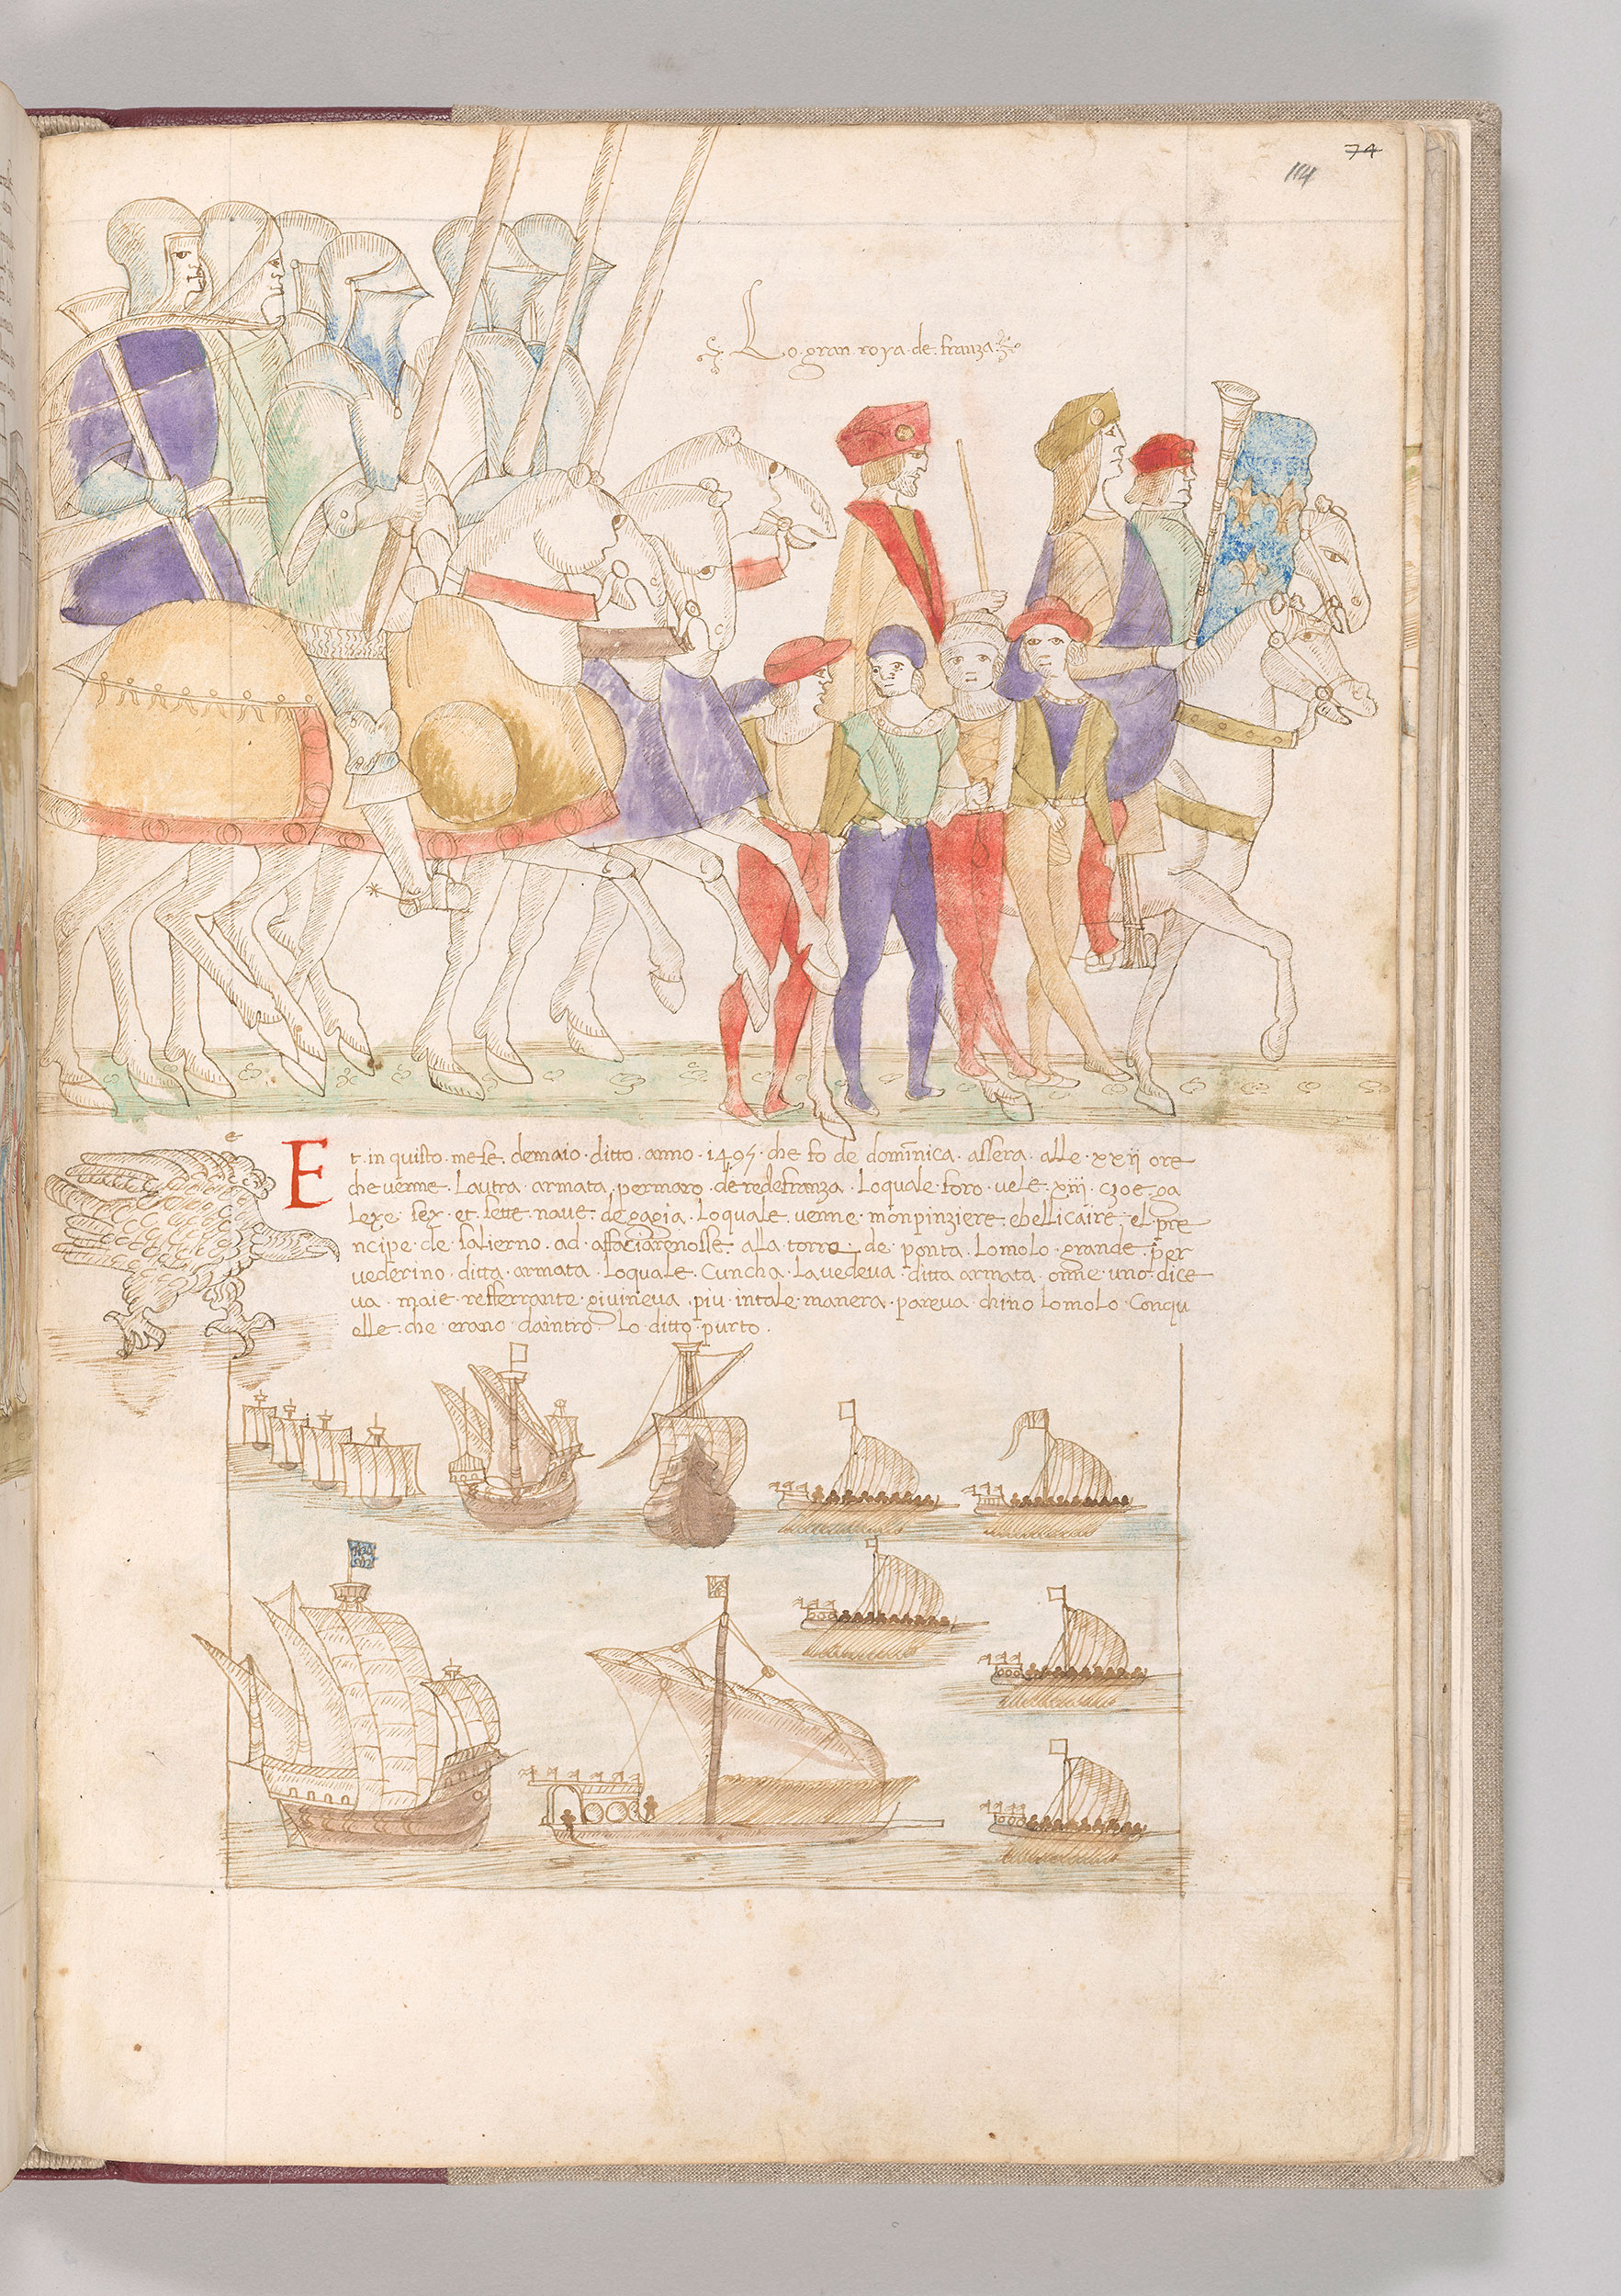 74
114
Lo · gran · roya · de · franza ·
Et · in quisto · mese · demaio · ditto · anno · 1495 · che fo de domīnica · assera · alle · xxij ore
che venne · Lautra · armata · permaro · deredefranza · Loquale · foro · vele · xiij · czoe · ga
lexe · sex · et · sette · nave · de gagia · Loquale · venne · monpinziere · ebellicaire · el pre
ncipe · de · salierno · ad · affacciarenosse · alla torre · de · ponta · Lomolo · grande · per
vederino · ditta · armata · Loquale · Cuncha · Lavedeva · ditta armata · onne · uno · dice
va · maie · refferrante · givineva · piu · intale · manera · pareva · chino lomolo · Conqu
elle · che · erano · daintro · Lo · ditto · purto ·